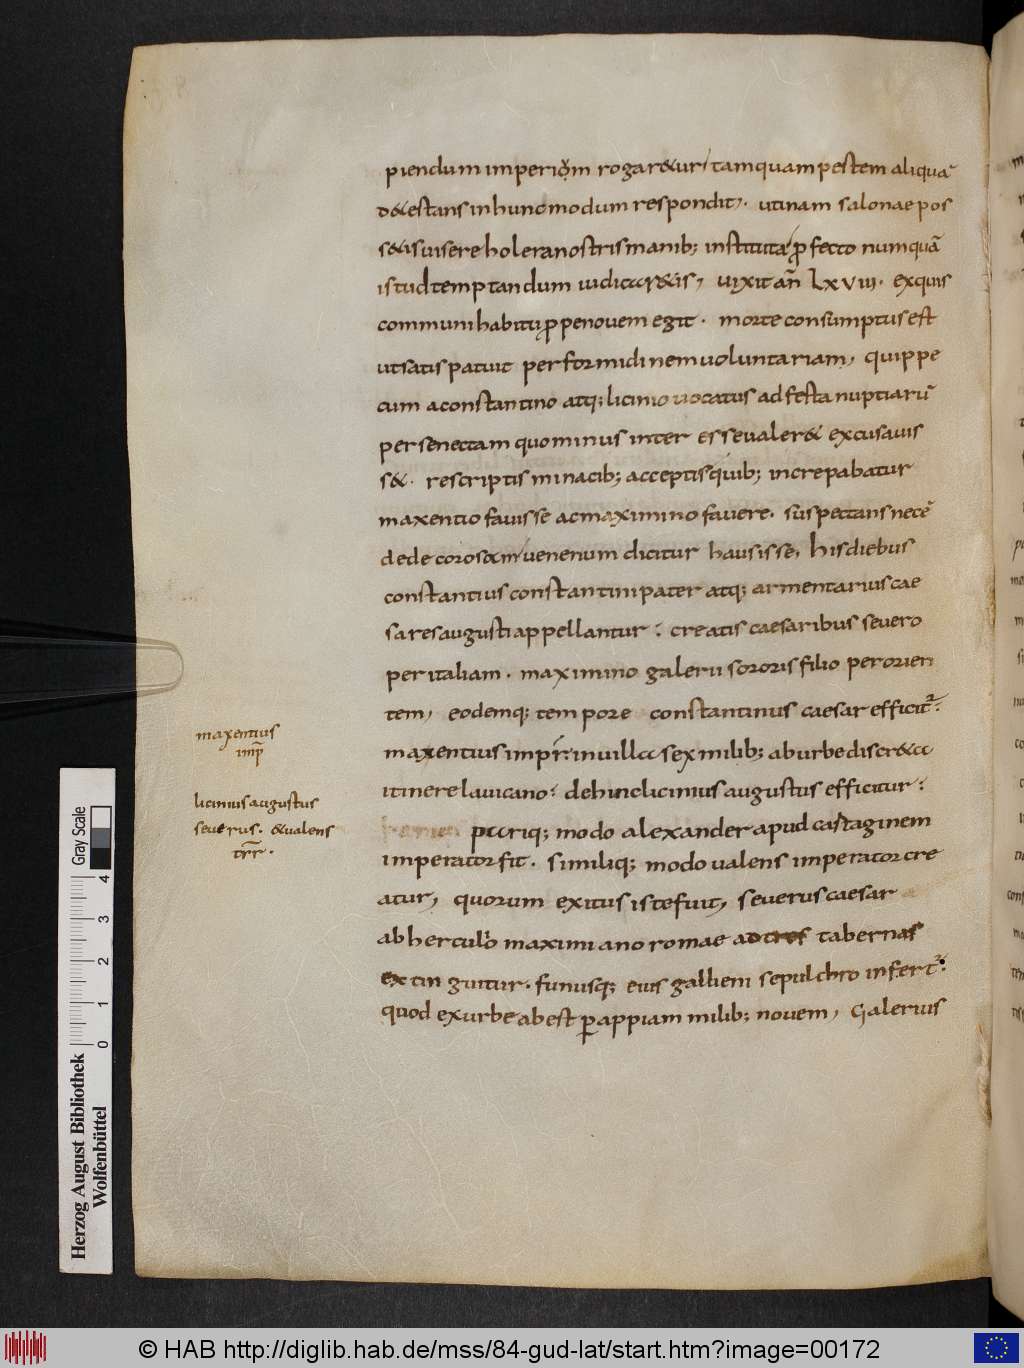 piendum imperiom rogar&ur tamquam pestem aliquā
d&estans in hunc modum respondit. utinam salonae pos
s&is uisere holera nostris manib; instituta ꝓfecto numquā
istud temptandum iudicar&is, uixit añ lxviii. exquis
communi habitu ꝓpe nouem egit. morte consumptus est
ut satis patuit per formidinem uoluntariam, quippe
cum a constantino atq; licinio uocatus ad festa nuptiarū
per senectam quo minus inter esse ualer& excusauis
s&. rescriptis minacib; acceptis quib; increpabatur
maxentio fauisse ac maximino fauere. suspectans necē
dedecorosam uenenum dicitur hausisse, his diebus
constantius constantini pater atq; armentarius cae
sares augusti appellantur. creatis caesaribus seuero
per italiam. maximino galerii sororis filio per orien
tem, eodemq; tempore constantinus caesar efficit᷑.
maxentius imꝑr. in uilla sex milib; ab urbe discr&a
itinere lauicano. dehinc licinius augustus efficitur.
pariq; modo alexander apud castaginem
imperator fit. similiq; modo ualens imperator cre
atur, quorum exitus iste fuit, seuerus caesar
ab herculio maximiano romae ad tres tabernas
extinguitur. funusq; eius gallieni sepulchro infert᷑.
quod ex urbe abest ꝑ appiam milib; nouem, Galerius
maxentius
imꝑ
licinius augustus
seuerus. &ualens
Gray Scale
0 1 2 3 4
Herzog August Bibliothek
Wolfenbüttel
© HAB http://diglib.hab.de/mss/84-gud-lat/start.htm?image=00172